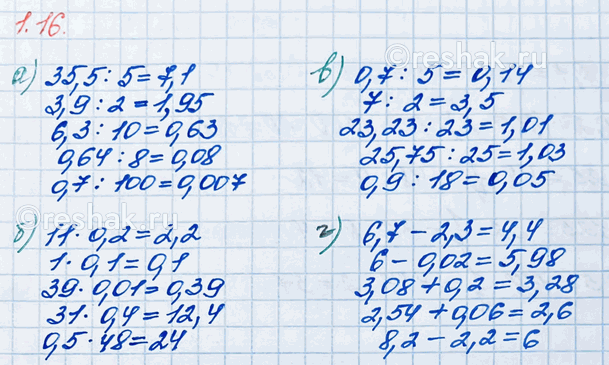 1.16.
а) 35,5 : 5 = 7,1
3,9 : 2 = 1,95
6,3 : 10 = 0,63
0,64 : 8 = 0,08
0,7 : 100 = 0,007
б) 11 · 0,2 = 2,2
1 · 0,1 = 0,1
39 · 0,01 = 0,39
31 · 0,4 = 12,4
0,5 · 48 = 24
в) 0,7 : 5 = 0,14
7 : 2 = 3,5
23,23 : 23 = 1,01
25,75 : 25 = 1,03
0,9 : 18 = 0,05
г) 6,7 − 2,3 = 4,4
6 − 0,02 = 5,98
3,08 + 0,2 = 3,28
2,54 + 0,06 = 2,6
8,2 − 2,2 = 6
©reshak.ru
©reshak.ru
©reshak.ru